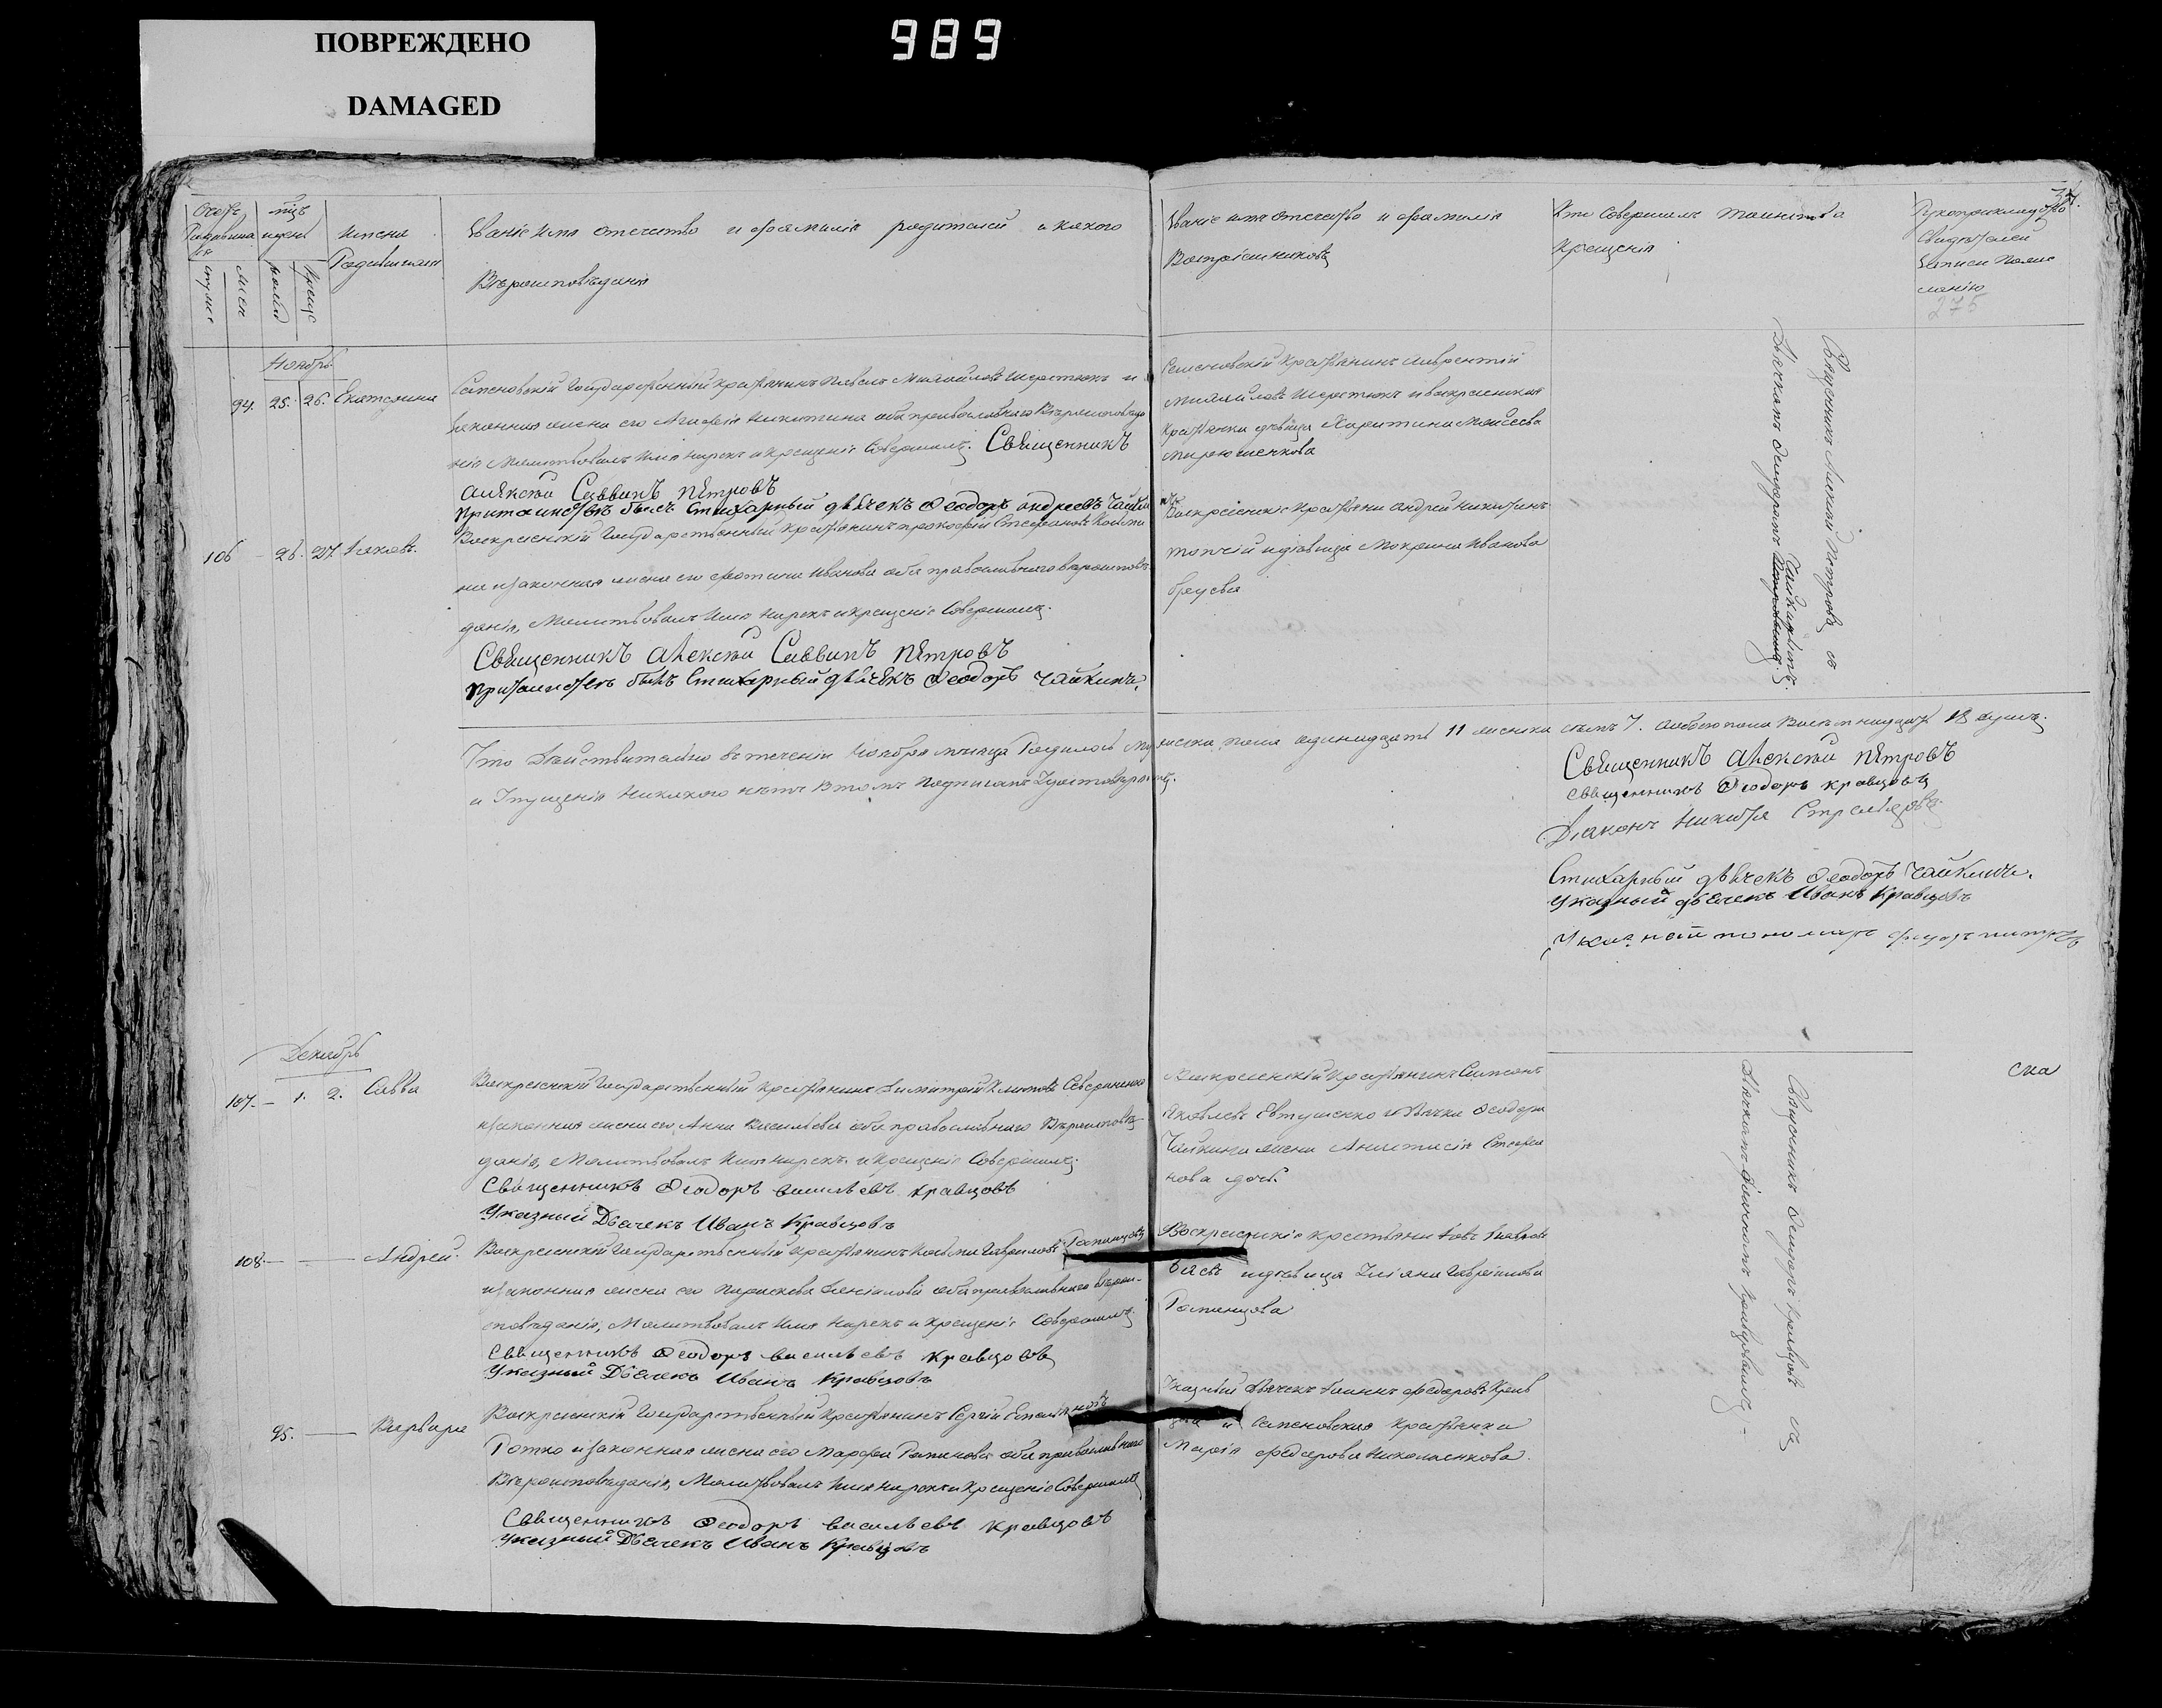 ПОВРЕЖДЕНО
DAMAGED
989
Имена
Родившихся
Званіе Имя отечество и фамилія родителей и какого
Вѣроисповѣданія
Званіе имя отечество и фамилія
Воспріемниковъ
Кто совершалъ таинство
крещенія
Рукоприкладство
Свидѣтелей
записи По
275
Ноябрь
94. 25. 26. Екатерина
Семеновскій Государственный крестьянинъ Павелъ Михайловъ Шерстюкъ и
законная жена его Агафія Никитина оба православнаго Вѣроисповѣда
нія Молитвовалъ Имя нарекъ и крещеніе Совершилъ. Священникъ
Алексѣй Саввинъ Петровъ
При таинствѣ былъ Стихарный дьячекъ Ѳеодоръ Андреевъ Чайкинъ
Семеновскій Крестьянинъ Лаврентій
Михайловъ Шерстюкъ и воскресенская
Крестьянка дѣвица Харитина Моисеева
Мирошенкова
Священникъ Алексѣй Петровъ съ
Дьячкомъ Ѳеодоромъ Чайкинымъ.
106 - 26. 27. Іаковъ.
Воскресенскій Государственный крестьянинъ Прокофій Стефановъ
и законная жена его Фотина Иванова оба православнаго вѣроисповѣ
данія, Молитвовалъ Имя нарекъ и крещеніе Совершилъ.
Священникъ Алексѣй Саввинъ Петровъ
При таинствѣ былъ Стихарный дьячекъ Ѳеодоръ Чайкинъ.
Воскресенскіе Крестьяни Андрей Никитинъ
и дѣвица Мокрина Иванова
Что Дѣйствительно въ теченіи Ноября мѣсяца Родилось мужеска пола одинадцать 11 женска семь 7. обоего пола Восемнадцать 18 душъ.
и Упущенія никакого нѣтъ Въ томъ Подписомъ Удостовѣряемъ.
Священникъ Алексѣй Петровъ
Священникъ Ѳеодоръ Кравцовъ
Діаконъ Никита Стрельцовъ
Стихарный дьячекъ Ѳеодоръ Чайкинъ.
Указный дьячекъ Иванъ Кравцовъ
Указной пономарь Федоръ Петровъ
Декабрь
107. - 1. 2. Савва
Воскресенскій Государственный крестьянинъ Димитрій Климовъ Севериненко
и законная жена его Анна Васильева оба православнаго Вѣроисповѣ-
данія, Молитвовалъ Имя нарекъ и крещеніе Совершилъ.
Священникъ Ѳеодоръ Васильевъ Кравцовъ
Указный Дьячекъ Иванъ Кравцовъ
Воскресенскій Крестьянинъ Симеонъ
Яковлевъ Евтушенко и дьячка Ѳеодора
Чайкина жена Анастасія Стефа
нова дочь.
Священникъ Ѳеодоръ Кравцовъ съ
Дьячкомъ Іоанномъ Кравцовымъ.
108. - Андрей.
Воскресенскій Государственный крестьянинъ Косьма Гавриловъ
и законная жена его Параскева оба православнаго вѣрои-
сповѣданія, Молитвовалъ Имя нарекъ и крещеніе Совершилъ.
Священникъ Ѳеодоръ Васильевъ Кравцовъ
Указный Дьячекъ Иванъ Кравцовъ
и дѣвица Уліяна Гавриилова
95. - Варвара
Воскресенскій Государственный крестьянинъ Сергій
и законная жена его Марфа Романова оба православнаго
Вѣроисповѣданія, Молитвовалъ Имя нарекъ и Крещеніе Совершилъ
Священникъ Ѳеодоръ Васильевъ Кравцовъ
Указный Дьячекъ Иванъ Кравцовъ
Указный дьячекъ Іоаннъ Федоровъ Крав
и Семеновская Крестьянка
Марія Федорова Николаенкова.